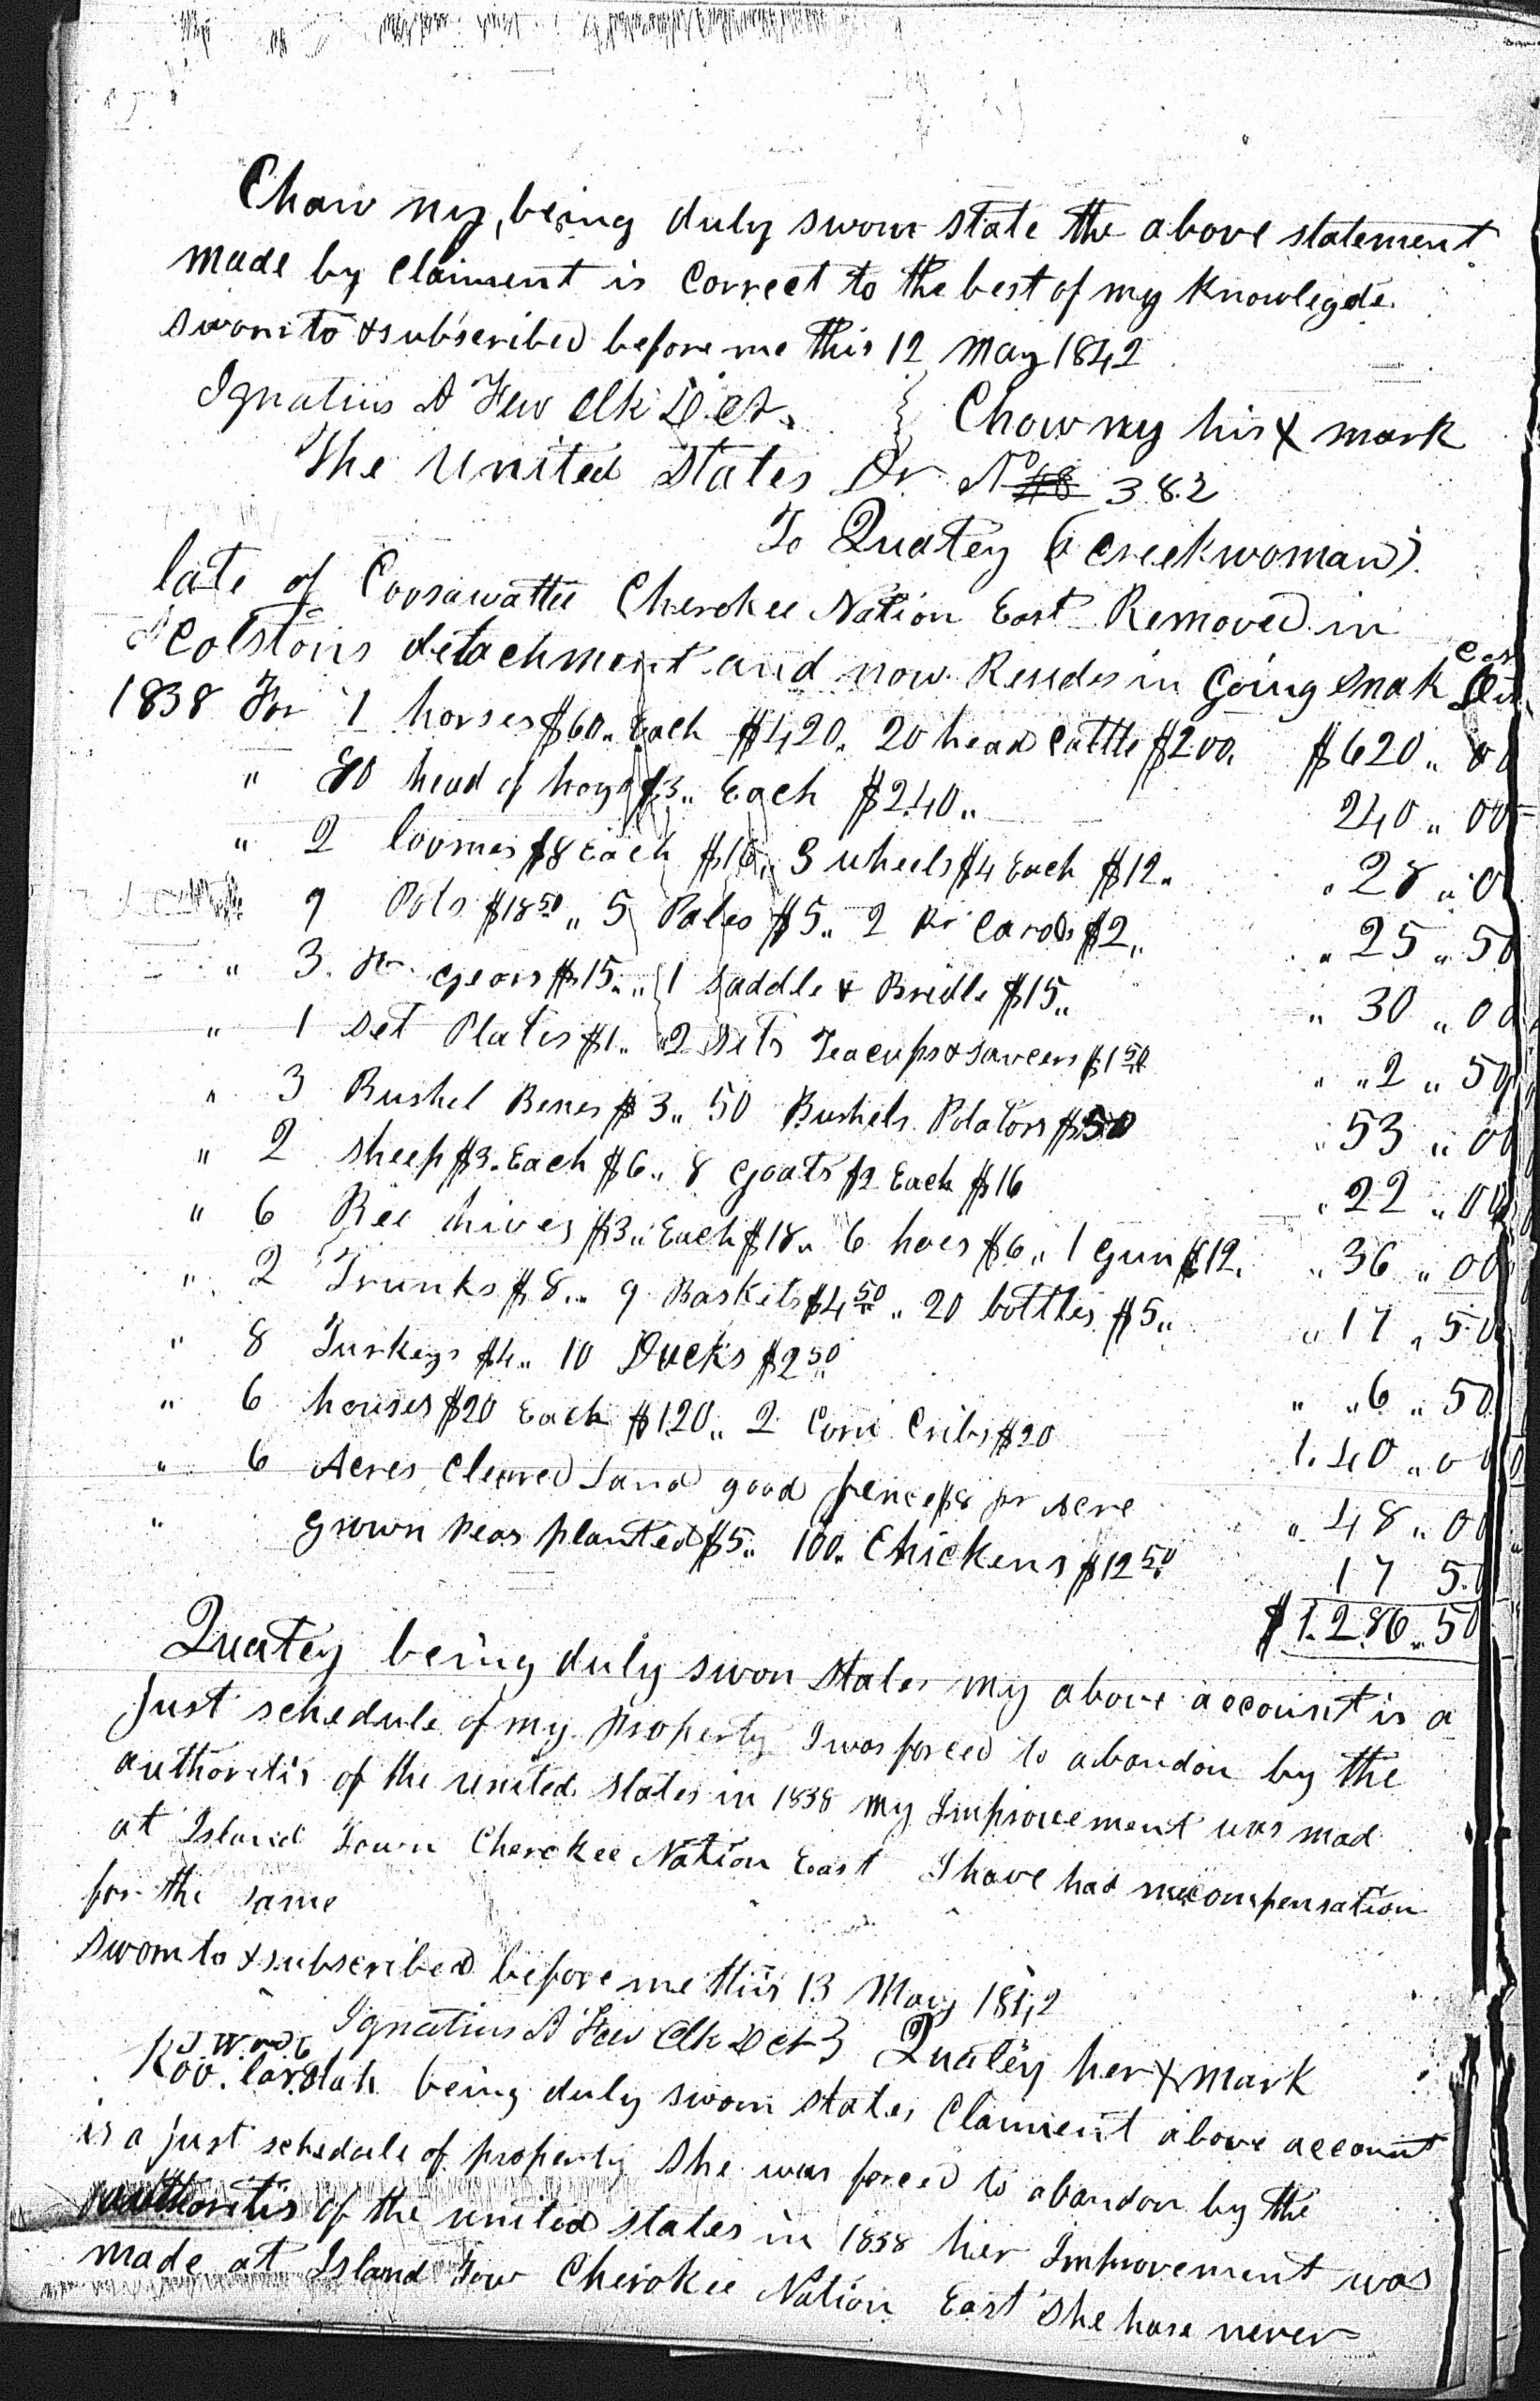 Chaw ny, being duly sworn state the above statement
made by Claiment is Correct to the best of my Knowlegde.
Sworn to & subscribed before me this 12 May 1842
Ignatius A Few Clk D Ct. } Chaw ny his X mark
The United States Dr. No 382
To Quatey (a creek woman).
late of Coosawattee Cherokee Nation East Removed in
Colston's detachment and now Resides in Going Snak Dis.
1838 For 7 horses $60.. Each $420. 20 head Cattle $200. $620 .. 00
" 80 head of hogs $3.. Each $240.. 240 .. 00
" 2 loomes $8 Each $16.. 3 wheels $4 Each $12. " 28 .. 0
9 Pots $18 50 .. 5 Pales $5.. 2 Pr Cards $2.. " 25 .. 50
" 3. Pr. Gears $15... 1 Saddle & Bridle $15.. " 30 .. 00
" 1 Set Plates $1.. 2 Sets Teacups & saucers $1 50 " " 2 .. 50
" 3 Bushel Benes $3.. 50 Bushels Potatoes $50 " 53 .. 00
" 2 Sheep $3. Each $6.. 8 Goats $2 Each $16 " 22 .. 00
" 6 Bee hives $3.. Each $18.. 6 hoes $6.. 1 Gun $12. " 36 .. 00
" 2 Trunks $8... 9 Baskets $4 50 .. 20 bottles $5.. " 17 .. 50
" 8 Turkeys $4.. 10 Ducks $2 50 " " 6 .. 50
" 6 houses $20 Each $120.. 2 Corn Cribs $20 1.40 .. 00
" 6 Acres Cleared Land good fence $8 pr acre " 48 .. 00
" grown Peas planted $5.. 100. Chickens $12 50 17 50
$1.286.50
Quatey being duly swon States my above account is a
just schedule of my Property I was forced to abandon by the
authoretis of the united States in 1838 my Improvement was mad
at Island Town Cherokee Nation East I have had no compensation
for the same
Sworn to & subscribed before me this 13 May 1842
Ignatius A Few Clk D Ct } Quatey her X mark
being duly sworn states Claiment above account
is a just schedule of property She was forced to abandon by the
authoretis of the united states in 1838 her Improvement was
made at Island Tow Cherokee Nation East She hase never